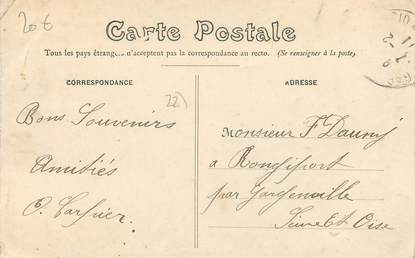 20 €
Carte Postale
Tous les pays étrang... n'acceptent pas la correspondance au recto. (Se renseigner à la poste)
CORRESPONDANCE
ADRESSE
22)
Bons Souvenirs
Amitiés
Monsieur F Dauny
a Rangiport
par Gargenville
Seine Et Oise